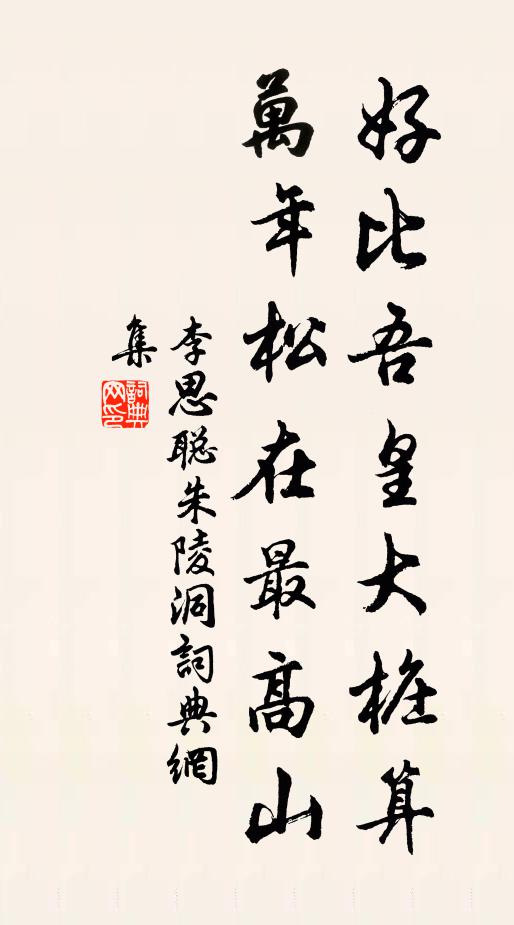 好比吾皇大椿算
萬年松在最高山
李思聪朱陵洞詞典網
集
詞典
网印